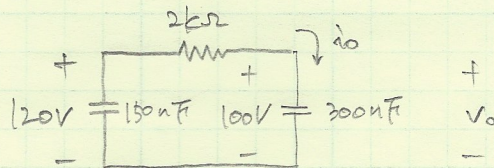 2kΩ
io
+ + +
120V 150nF 100V 300nF vo
- - -